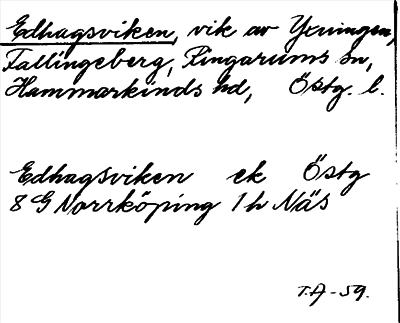 Edhagsviken, vik av Yxningen,
Fallingeberg, Ringarums sn,
Hammarkinds hd, Östg. l.
Edhagsviken ek Östg
8 G Norrköping 1 h Näs
T.A-59.